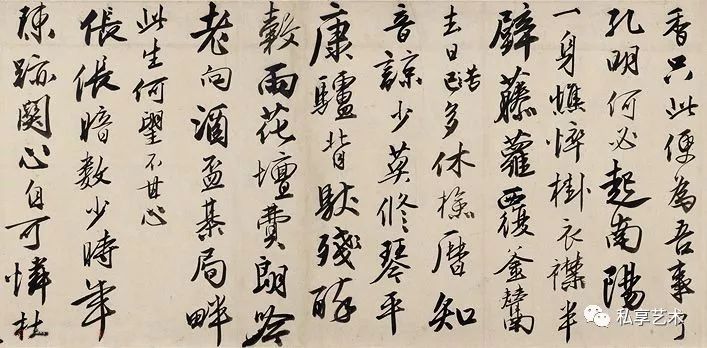 香只此便為吾事了
孔明何必起南陽
一身憔悴掛衣襟半
壁藤蘿覆釜鬵
去日苦多休檢曆知
音諒少莫修琴平
康驢背馱殘醉
穀雨花壇費朗吟
老向酒盃棊局畔
此生何望不甘心
悵悵暗數少時年
陳跡關心自可憐杜
私享艺术